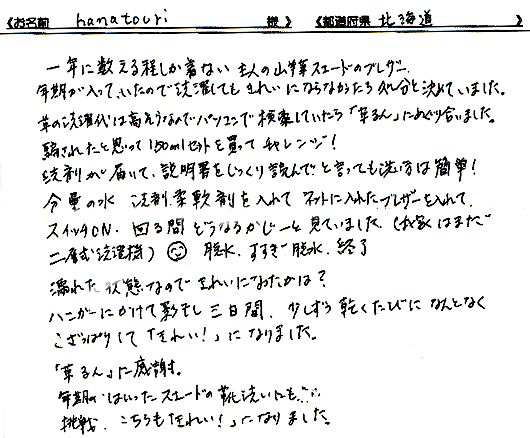 《お名前 hanatouri 様》 《都道府県 北海道 》
一年に数える程しか着ない主人の山羊スエードのブレザー。
年期が入っていたので洗濯してもきれいにならなかったら処分と決めていました。
革の洗濯代は高そうなのでパソコンで検索していたら「革るん」にめぐり合いました。
騙されたと思って150mlセットを買ってチャレンジ!
洗剤が届いて、説明書をじっくり読んでと言っても洗い方は簡単!
分量の水 洗剤、柔軟剤を入れて ネットに入れたブレザーを入れて、
スイッチON、回る間どうなるかじーと見ていました(我家はまだ
二層式洗濯機) 脱水、すすぎ 脱水、終了
濡れた状態なのできれいになおたかは?
ハンガーにかけて影干し三日間、少しずつ乾くたびになんとなく
こざっぱりして「きれい!」になりました。
「革るん」に感謝。
年期のはいったスエードの靴洗いにも
挑戦、こちらも「きれい!」になりました。